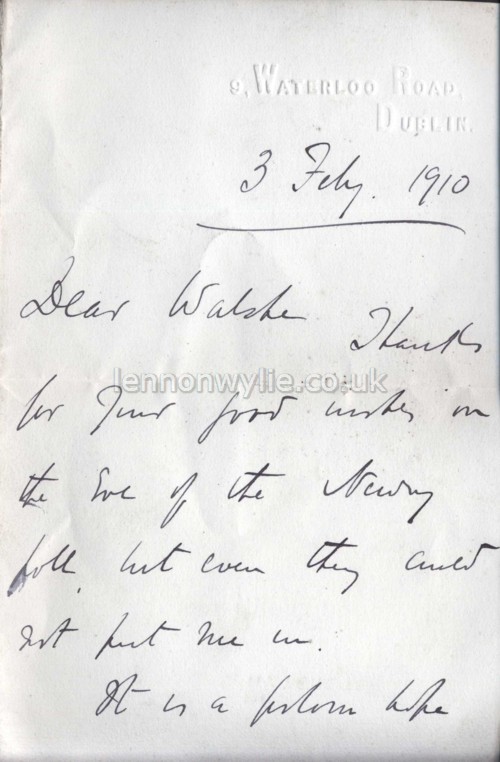 9, WATERLOO ROAD,
DUBLIN.
3 Feby. 1910
Dear Walshe Thanks
lennonwylie.co.uk
for your good wishes on
the Eve of the Newry
poll, but even they could
not put me in.
It is a forlorn hope